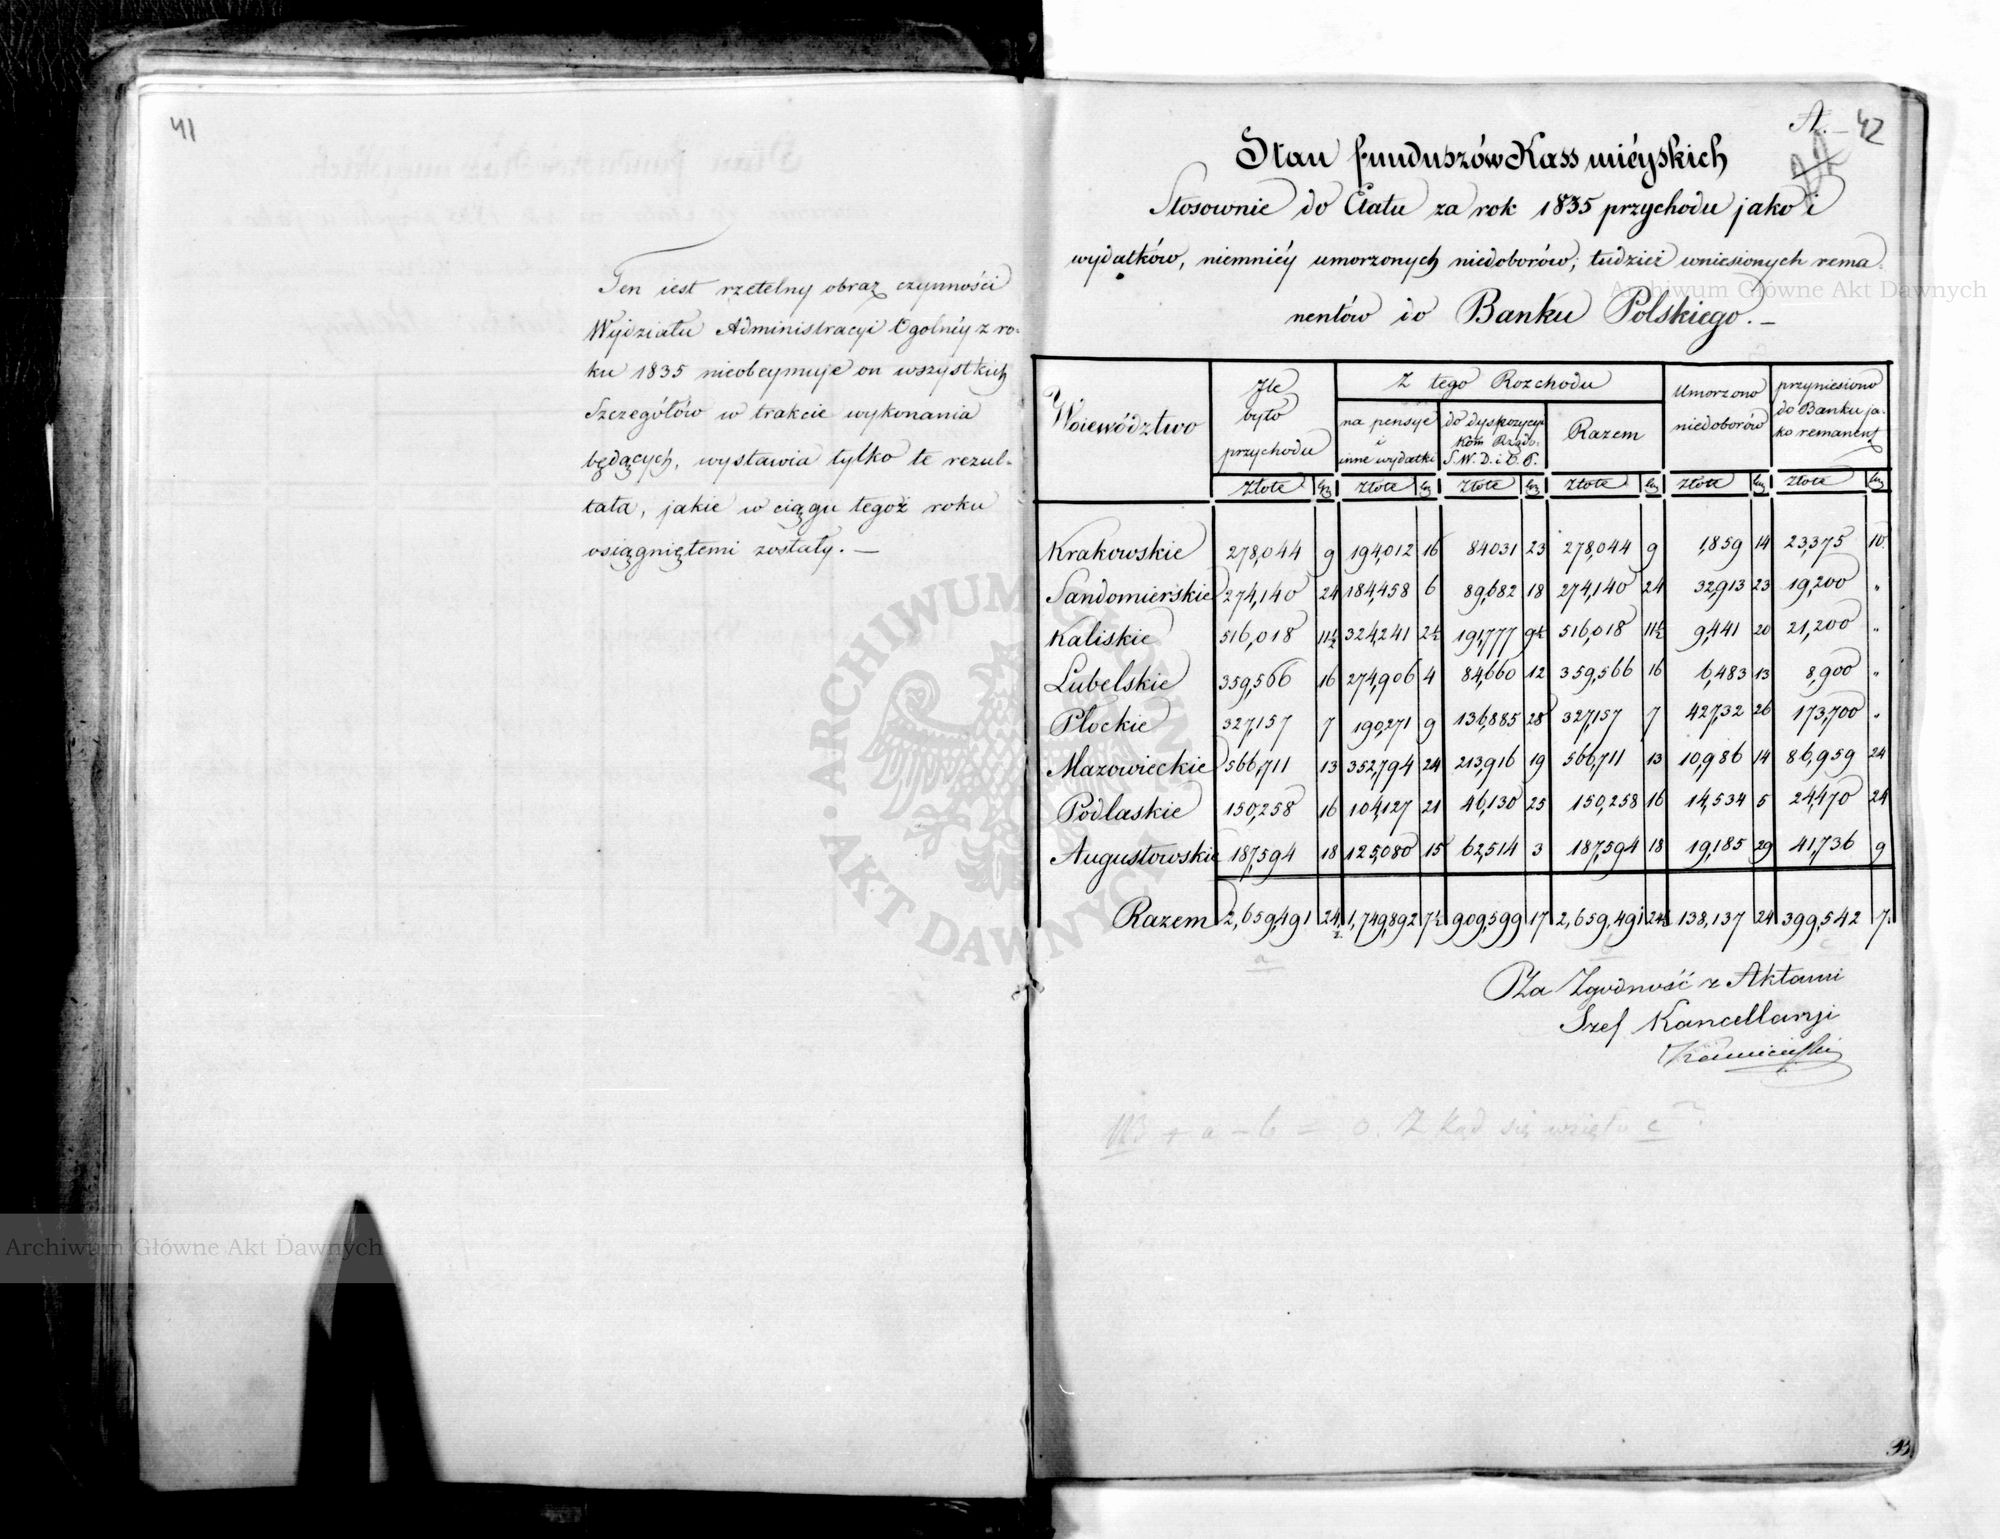 41
Ten iest rzetelny obraz czynności
Wydziału Administracyi Ogolnéy z ro-
ku 1835 nieobeymuje on wszystkich
Szczegółów w trakcie wykonania
będących, wystawia tylko te rezul-
tata, jakie w ciągu tegoż roku
osiągniętemi zostały. —
A. — 42
Stan funduszów Kass mieyskich
Stosownie do Etatu za rok 1835 przychodu jako i
wydatków, niemniéy umorzonych niedoborów; tudzież wniesionych rema-
nentów do Banku Polskiego. —
Województwo | Jle było przychodu | Z tego Rozchodu | Umorzono niedoborów | przyniesiono do Banku ja-ko remanent
na pensye i inne wydatki | do dyspozycyi Kom Rządo: S. W. D. i O. P. | Razem
Złote | gr | Złote | gr | Złote | gr | Złote | gr | Złote | gr | Złote | gr
Krakowskie | 278,044 | 9 | 194,012 | 16 | 84031 | 23 | 278,044 | 9 | 1,859 | 14 | 23,375 | 10.
Sandomierskie | 274,140 | 24 | 184,458 | 6 | 89,682 | 18 | 274,140 | 24 | 32,913 | 23 | 19,200 | "
Kaliskie | 516,018 | 11½ | 324,241 | 2½ | 191,777 | 9½ | 516,018 | 11½ | 9,441 | 20 | 21,200 | "
Lubelskie | 359,566 | 16 | 274,906 | 4 | 84,660 | 12 | 359,566 | 16 | 6,483 | 13 | 8,900 | "
Płockie | 327,157 | 7 | 190,271 | 9 | 136,885 | 28 | 327,157 | 7 | 42,732 | 26 | 173,700 | "
Mazowieckie | 566,711 | 13 | 352,794 | 24 | 213,916 | 19 | 566,711 | 13 | 10,986 | 14 | 86,959 | 24
Podlaskie | 150,258 | 16 | 104,127 | 21 | 46,130 | 25 | 150,258 | 16 | 14,534 | 5 | 24,470 | 24
Augustowskie | 187,594 | 18 | 125,080 | 15 | 62,514 | 3 | 187,594 | 18 | 19,185 | 29 | 41,736 | 9
Razem | 2,659,491 | 24½ | 1,749,892 | 7½ | 909,599 | 17 | 2,659,491 | 24½ | 138,137 | 24 | 399,542 | 7.
a b c
Za Zgodność z Aktami
Szef Kancellaryi
NB + a - b = 0. Z kąd się wzięło c?
Archiwum Główne Akt Dawnych
ARCHIWUM GŁÓWNE AKT DAWNYCH
Archiwum Główne Akt Dawnych